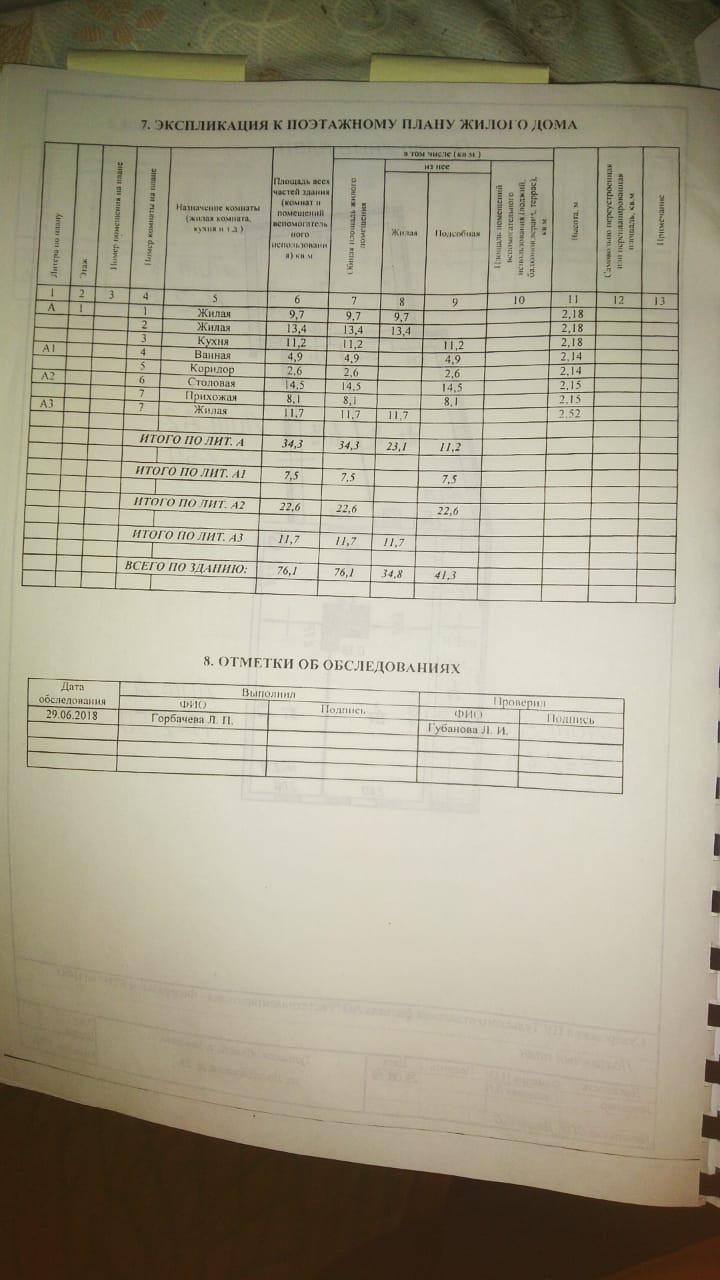 7. ЭКСПЛИКАЦИЯ К ПОЭТАЖНОМУ ПЛАНУ ЖИЛОГО ДОМА
Литера по плану
Этаж
Номер помещения на плане
Номер комнаты на плане
Назначение комнаты
(жилая комната,
кухня и т.д.)
Площадь всех
частей здания
(комнат и
помещений
вспомогатель
ного
использовани
я) кв м
в том числе (кв м )
Общая площадь жилого
помещения
из нее
Жилая
Подсобная
Площадь помещений
вспомогательного
использования (лоджий,
балконов, веранд, террас),
кв м
Высота, м
Самовольно переустроенная
или перепланированная
площадь, кв м
Примечание
1 2 3 4 5 6 7 8 9 10 11 12 13
А 1 1 Жилая 9,7 9,7 9,7 2,18
2 Жилая 13,4 13,4 13,4 2,18
3 Кухня 11,2 11,2 11,2 2,18
А1 4 Ванная 4,9 4,9 4,9 2,14
5 Коридор 2,6 2,6 2,6 2,14
А2 6 Столовая 14,5 14,5 14,5 2,15
7 Прихожая 8,1 8,1 8,1 2,15
А3 7 Жилая 11,7 11,7 11,7 2,52
ИТОГО ПО ЛИТ. А 34,3 34,3 23,1 11,2
ИТОГО ПО ЛИТ. А1 7,5 7,5 7,5
ИТОГО ПО ЛИТ. А2 22,6 22,6 22,6
ИТОГО ПО ЛИТ. А3 11,7 11,7 11,7
ВСЕГО ПО ЗДАНИЮ: 76,1 76,1 34,8 41,3
8. ОТМЕТКИ ОБ ОБСЛЕДОВАНИЯХ
Дата
обследования
Выполнил
Проверил
ФИО Подпись ФИО Подпись
29.06.2018 Горбачева Л. П. Губанова Л. И.